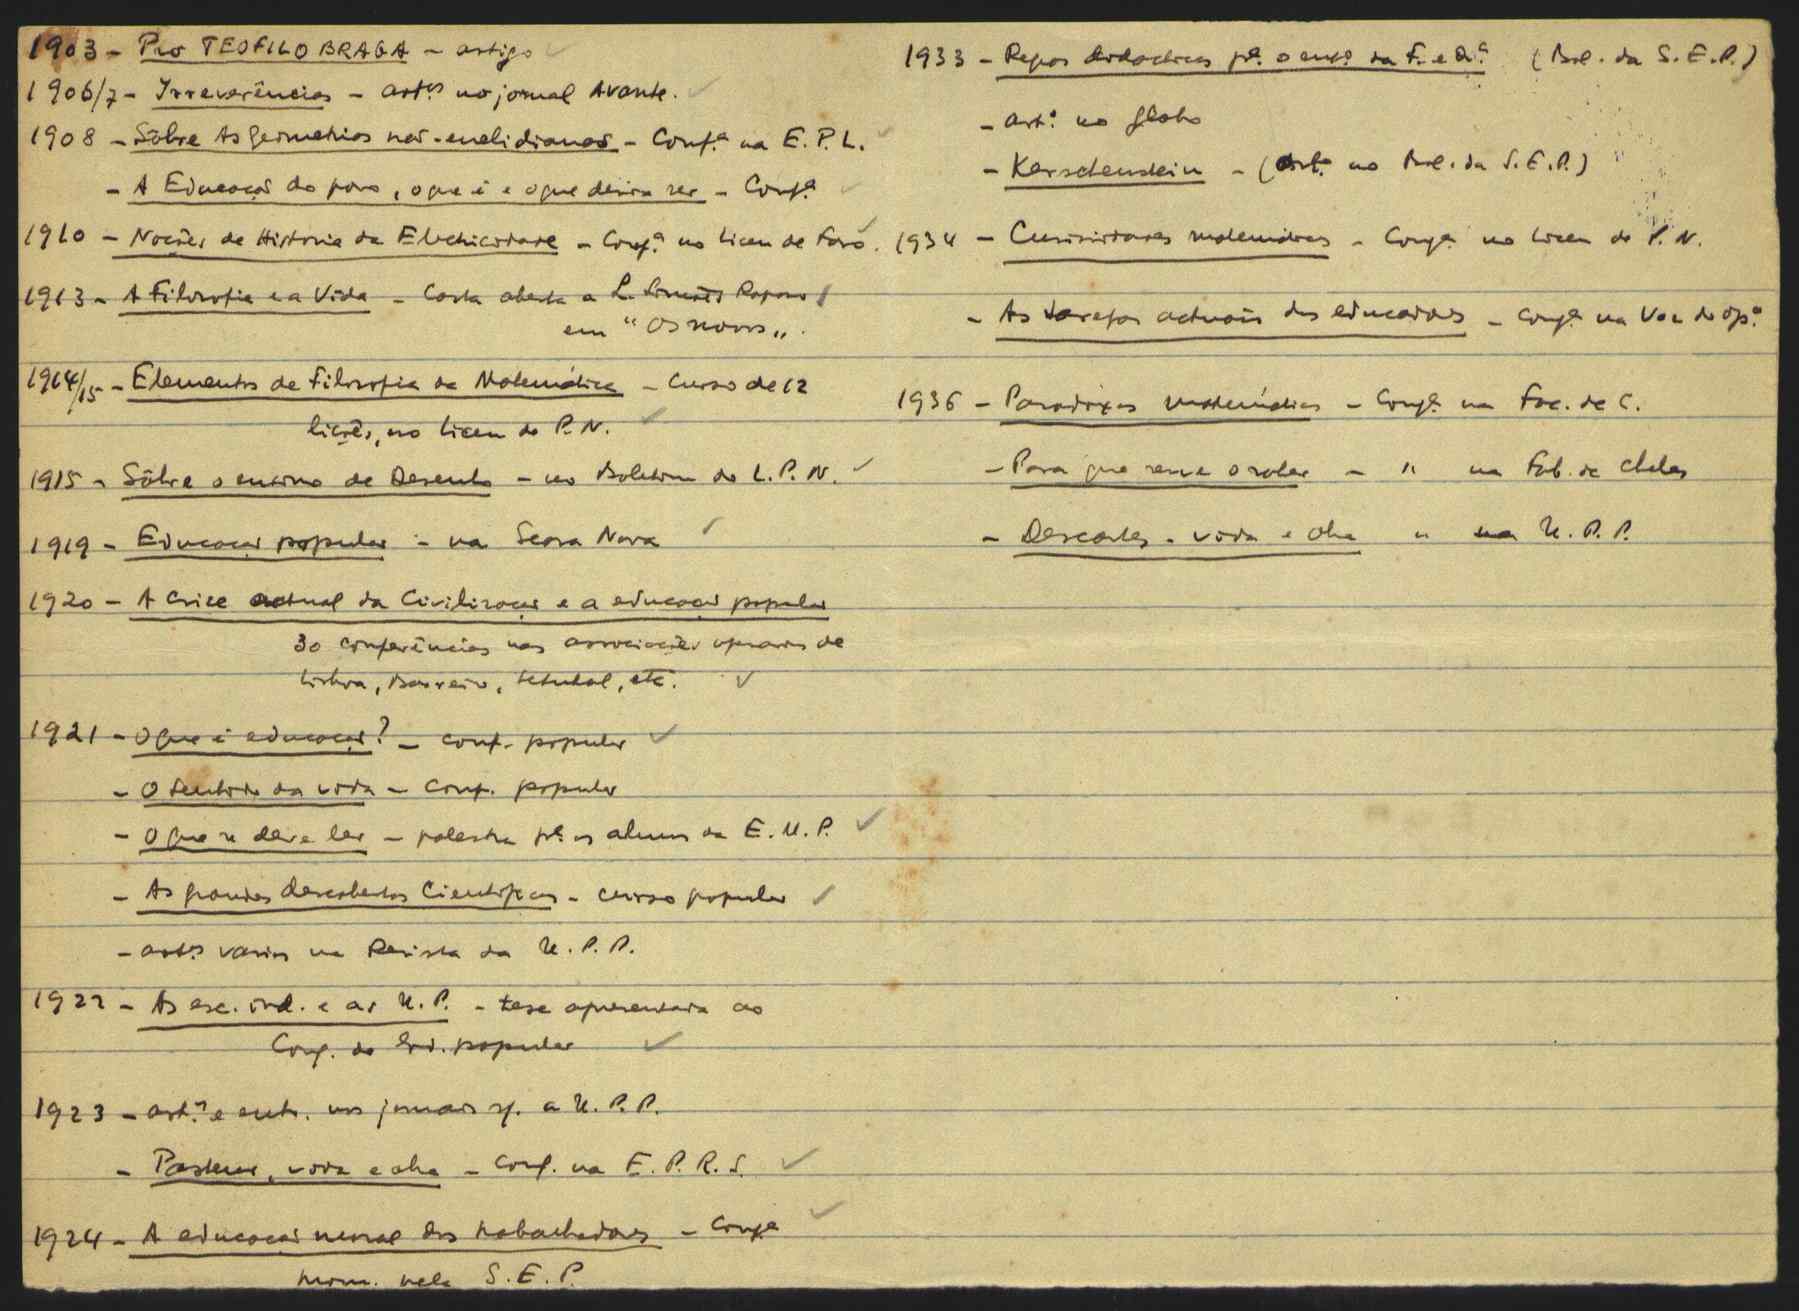 1903 - Pro TEOFILO BRAGA - artigo
1906/7 - Irreverências - art.os no jornal Avante.
1908 - Sôbre As geometrias não-euclidianas - Conf.a na E. P. L.
- A Educação do povo, o que é e o que devia ser - Conf.a
1910 - Noções de Historia da Electricidade - Conf.a no Liceu de Faro.
1913 - A Filosofia e a Vida - Carta aberta a L. Simões Raposo
em "Os novos".
1914/15 - Elementos de Filosofia da Matemática - Curso de 12
lições, no Liceu de P. N.
1915 - Sôbre o ensino de Desenho - no Boletim do L. P. N.
1919 - Educação popular - na Seara Nova
1920 - A crise actual da Civilização e a educação popular
30 conferências nas associações operarias de
Lisboa, Barreiro, Setubal, etc.
1921 - O que é educação? - conf. popular
- O sentido da vida - conf. popular
- O que se deve ler - palestra p.a os alunos da E. U. P.
- As grandes descobertas Cientificas - curso popular
- art.os varios na Revista da U. P. P.
1922 - As esc. ind. e as U. P. - tese apresentada ao
Cong. de Ed. popular
1923 - art.os e entr. nos jornais s/. a U. P. P.
- Pasteur, vida e obra - Conf. na E. P. R. S.
1924 - A educação moral dos trabalhadores - Conf.a
prom. pela S. E. P.
1933 - Regras didacticas p.a o ens.o da F. e Q.a (Bol. da S. E. P.)
- art.o no Globo
- Kerschenstein - (Art.o no Bol. da S. E. P.)
1934 - Curiosidades matemáticas - Conf.a no Liceu de P. N.
- As tarefas actuais dos educadores - Conf.a na Voz do Op.o
1936 - Paradoxos matemáticos - Conf.a na Fac. de C.
- Para que serve o saber - " na Fab. de Chelas
- Descartes - vida e obra " na U. P. P.